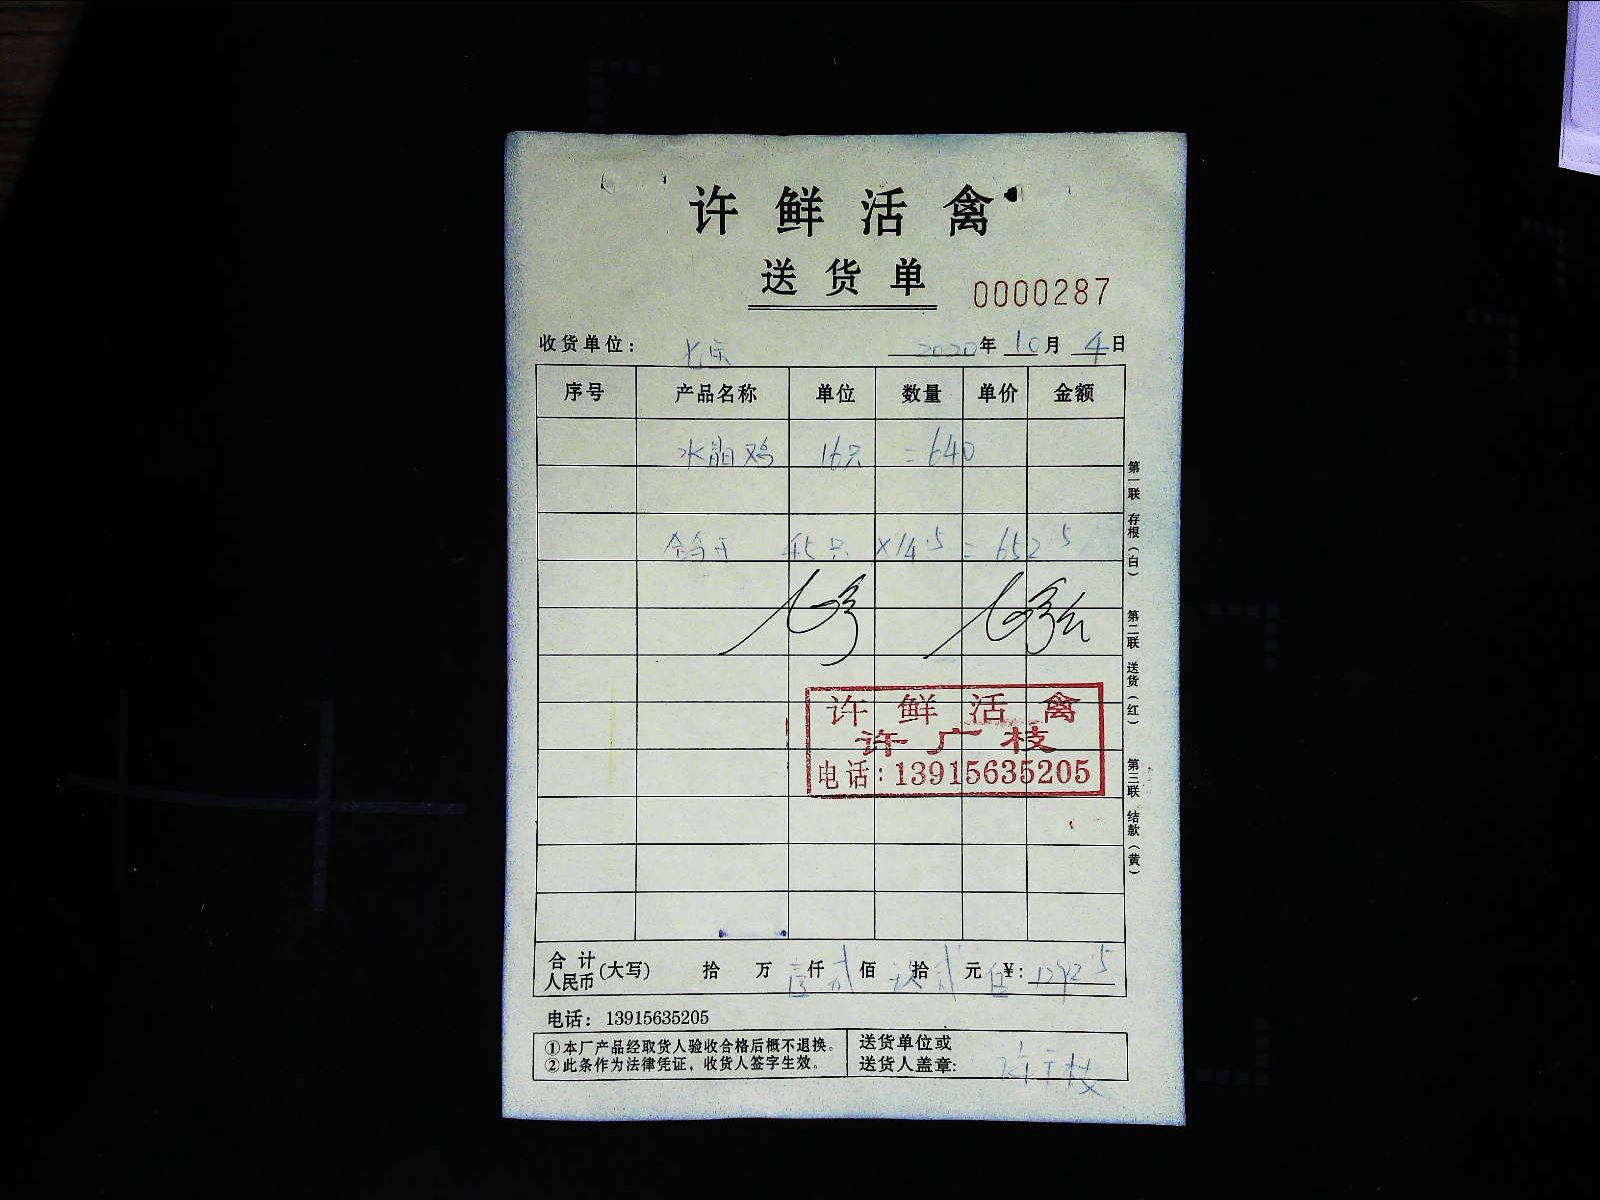 许鲜活禽
送货单 0000287
收货单位： 2020年10月4日
序号 产品名称 单位 数量 单价 金额
16只 =640
45只 ×14.5 = 652.5
许鲜活禽
许广枝
电话：13915635205
合计人民币(大写) 拾 万 壹仟贰佰 玖拾贰元伍 ¥：1292.5
电话：13915635205
①本厂产品经取货人验收合格后概不退换。
②此条作为法律凭证，收货人签字生效。
送货单位或
送货人盖章：许广枝
第一联 存根（白） 第二联 送货（红） 第三联 结款（黄）